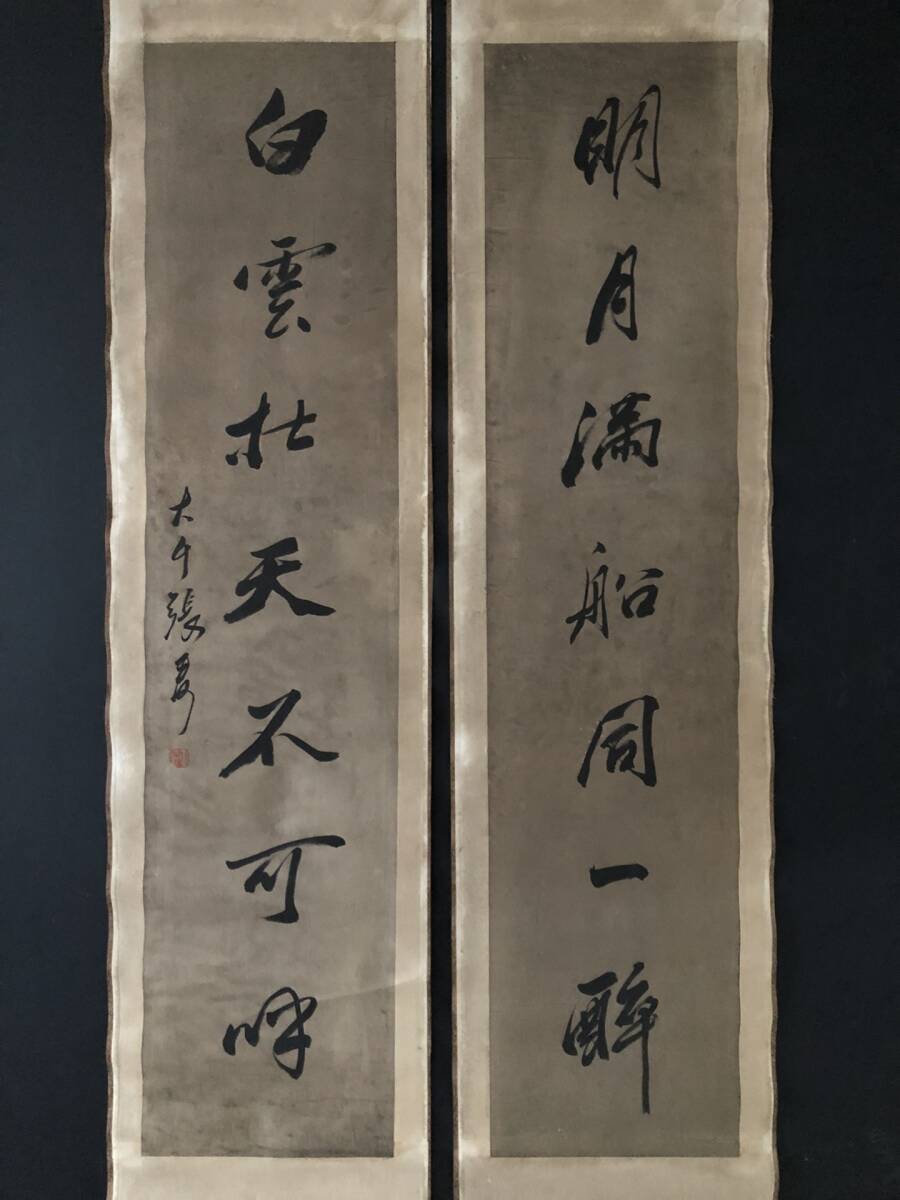 明月滿船同一醉
白雲在天不可呼
大千張爰